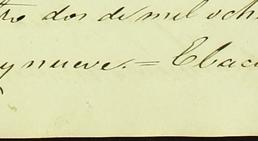 tro dos de mil och
y nueve. = Ebac